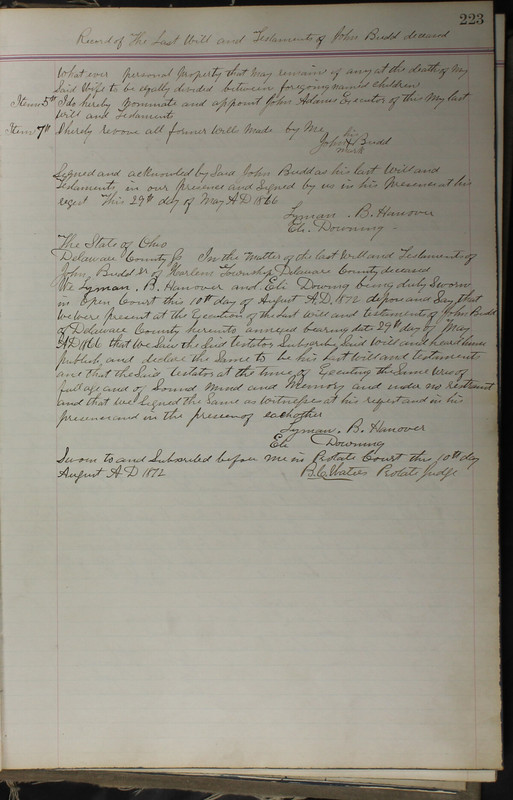 223
Record of The Last Will and Testaments of John Budd deceased
What ever personal property that may remain if any at the death of my
Said Wife to be Eqully divided between foregoing named children
Item 5th I do hereby nominate and appoint John Adams Executor of this My last
Will and Testament
Item 7th I hereby revoke all former Will Made by Me
his
John X Budd
mark
Signed and acknowledged by Said John Budd as his last Will and
Testaments, in our presence and Signed by us in his Presence at his
reqest This 29th day of May A D 1866
Lyman . B. Hanover
Eli. Downing
The State of Ohio
Delaware County Ss In the Matter of the last Will and Testament of
John, Budd Sr of Harlem Township Delaware County deceased
We Lyman . B. Hanover and Eli Downg being duly Sworn
in Open Court this 10th day of August A.D. 1872 depose and Say, that
we were present at the Execution of the last Will and testament of John Budd
of Delaware County hereunto annexed bearing date 29th day of May
AD 1866 that We Saw the Said testator Subscribe Said Will and heard him
publish, and declare the Same to be his last Will and testament
and that the Said testator at the time of Executing the Same was of
full age and of Sound Mind and Memory and under no restraint
and that We Signed the Same as Witnesses at his reqest and in his
presence and in the presence of each other
Lyman . B. Hanover
Eli Downing
Sworn to and Subscribed before me in Probate Court this 10th day
August A D 1872 B. C. Waters Probate Judge